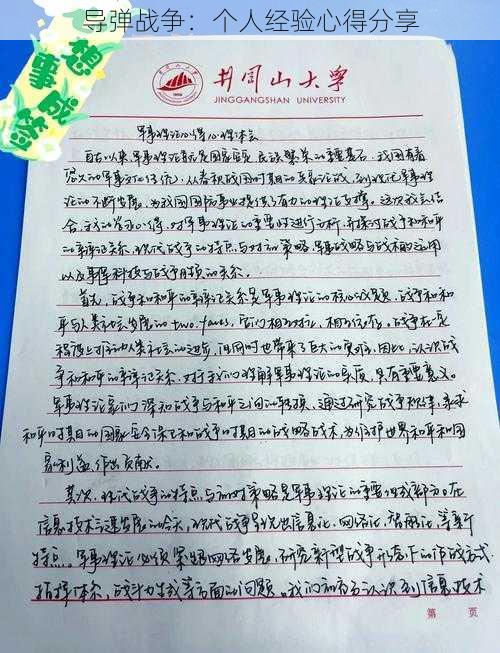 导弹战争：个人经验心得分享
想事成
井冈山大学
JINGGANGSHAN UNIVERSITY
军事理论心得心理体会
自古以来军事理论就是国家安全、民族繁荣的重要基石。我国有着
悠久的军事文化传统，从春秋战国时期的兵家论战，到现代军事理
论的不断发展，为我国国防事业提供了有力的理论支撑。这次我会结
合我的学习心得，对军事理论的重要性进行分析，并探讨战争和和平
的辩证关系、现代战争的特点与对策略、军事战略与战术的运用
以及军事科技与战争形态的关系。
首先，战争和和平的辩证关系是军事理论的核心议题，战争和和
平与人类社会发展的two faces，它们相互对立，相互依存。战争在一定
程度上推动人类社会的进步，但同时也带来了巨大的灾难。因此，认识战
争和和平的辩证关系，对于我们理解军事理论的实质，具有重要意义。
军事理论家们深知战争与和平之间的转换，通过研究战争规律，寻求
和平时期的国家安全保卫和战争时期的战略战术，为维护世界和平和国
家利益作出贡献。
其次，现代战争的特点与应对策略是军事理论的重要组成部分。在
信息技术迅速发展的今天，现代战争呈现出信息化、网络化、智能化等新
特点。军事理论必须紧跟时代发展，研究新型战争形态下的作战方式、
指挥体系、战斗力生成等方面的问题。我们和需要认识到信息技术
第 页